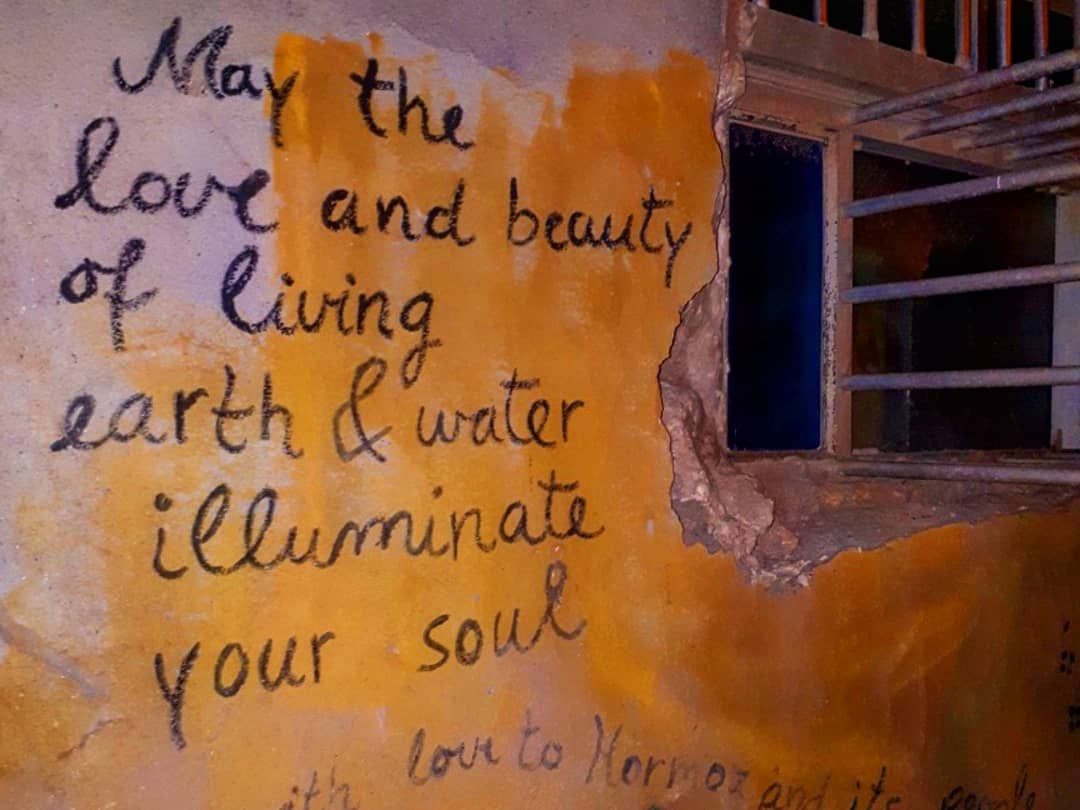 May the
love and beauty
of living
earth & water
illuminate
your soul
love to Hormoz and its